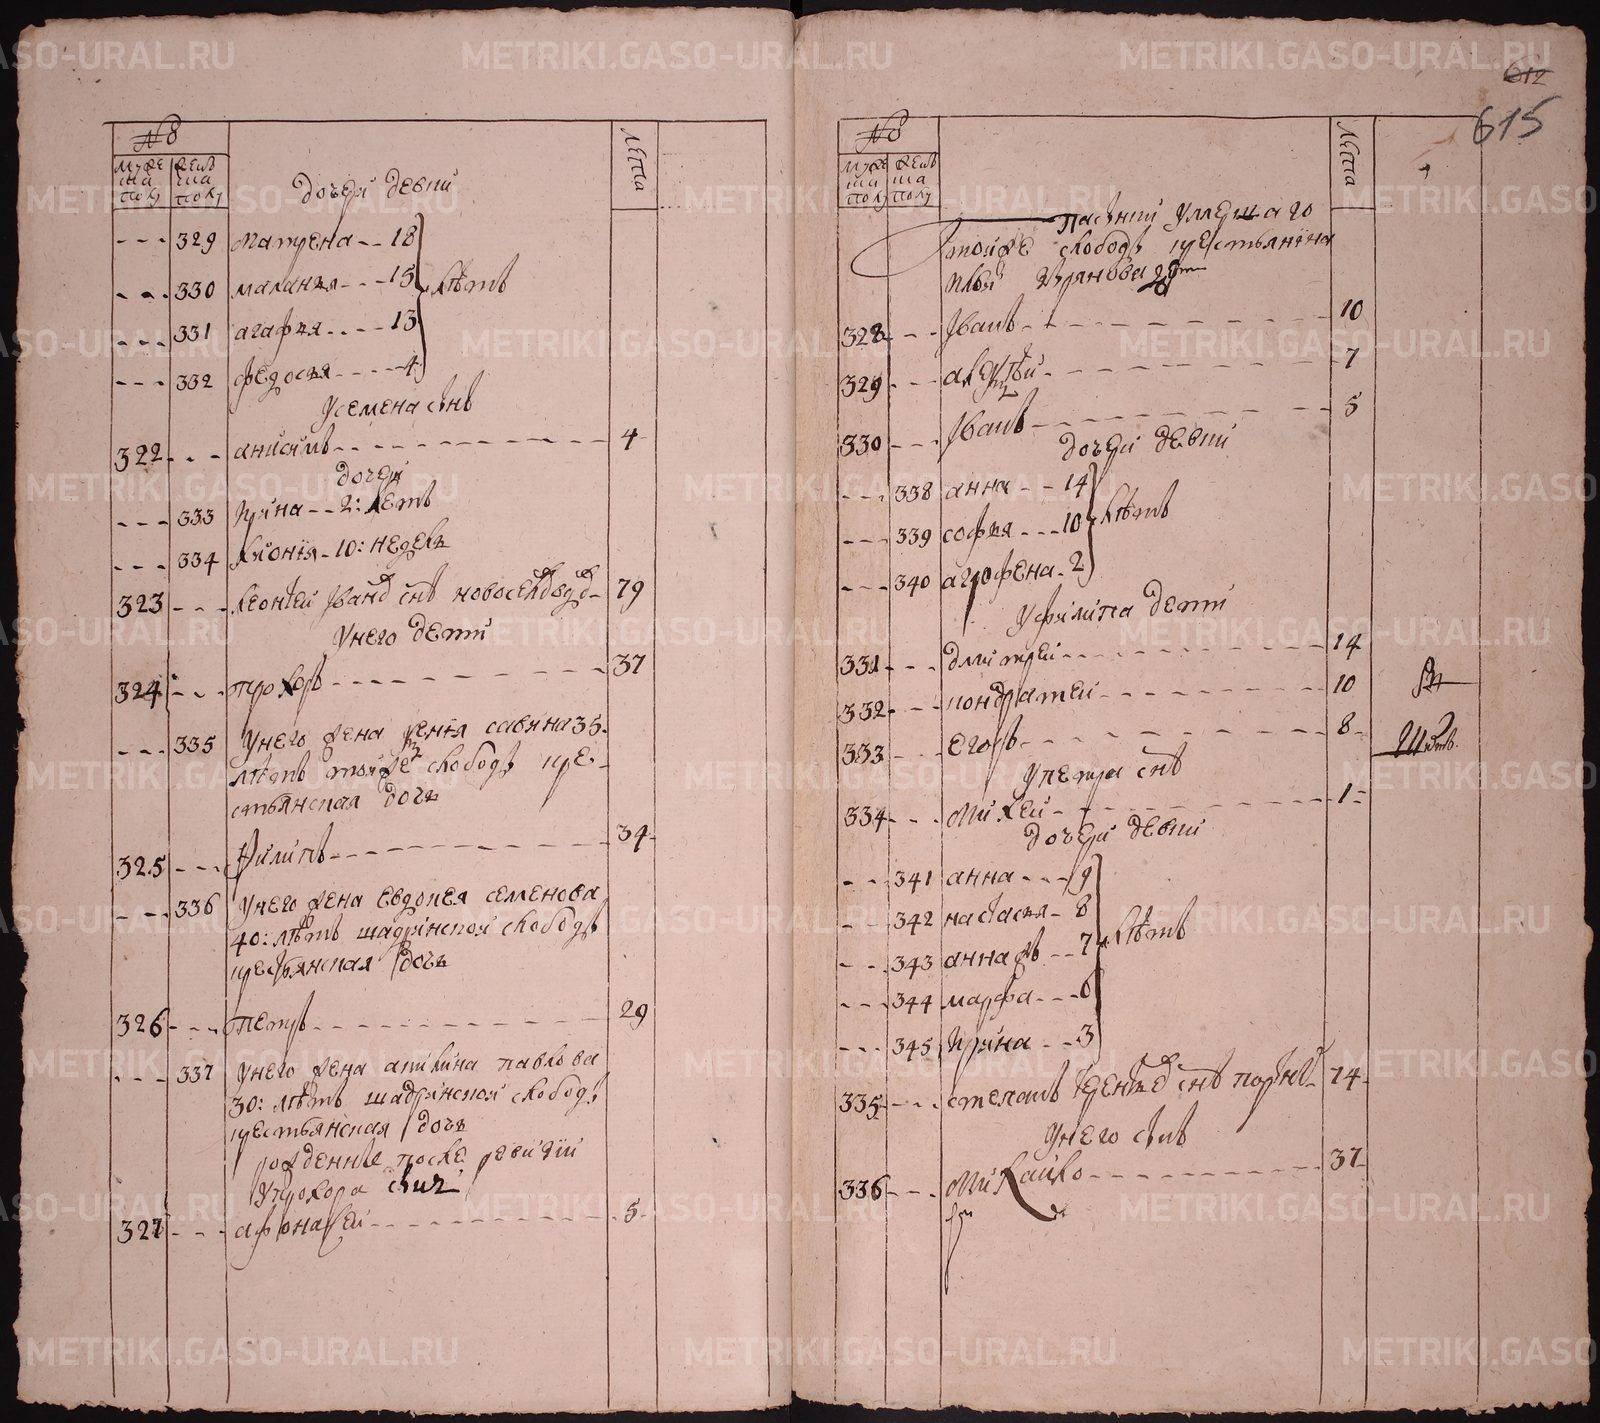 № 8
муже ска полу
женска полу
лета
дочери девки
329 матрена 18
330 маланья 15 летъ
331 агафья 13
332 федосья 4
У семена снъ
322 анисимъ 4
дочери
333 Ирина 2: летъ
334 хионiя 10: недель
323 леонтей Иванов снъ новоселцов 79
У него дети
324 прохоръ 37
335 У него жена ксенiя савина 35
летъ той же слободы кре
стьянская дочь
325 Филипъ 34
336 У него жена евдокея семенова
40: летъ шадринской слободы
крестьянская дочь
326 Петръ 29
337 У него жена акилина павлова
30: летъ шадринской слободы
крестьянская дочь
рожденные после ревизiи
У прохора
327 афонасей 5
612
615
№ 8
муже ска полу
женска полу
лета
пасынки умершаго
той же слободы крестьянина
328 Иванъ 10
329 алексей 7
330 Иванъ 5
дочери девки
338 анна 14
339 софья 10 летъ
340 агрофена 2
У филипа дети
331 дмитрей 14
332 кондратей 10
333 егоръ 8
У петра снъ
334 михей 1
дочери девки
341 анна 9
342 настасья 8
343 анна ж 7 летъ
344 марфа 6
345 Ирина 3
335 степанъ снъ 74
У него снъ
336 михайло 37